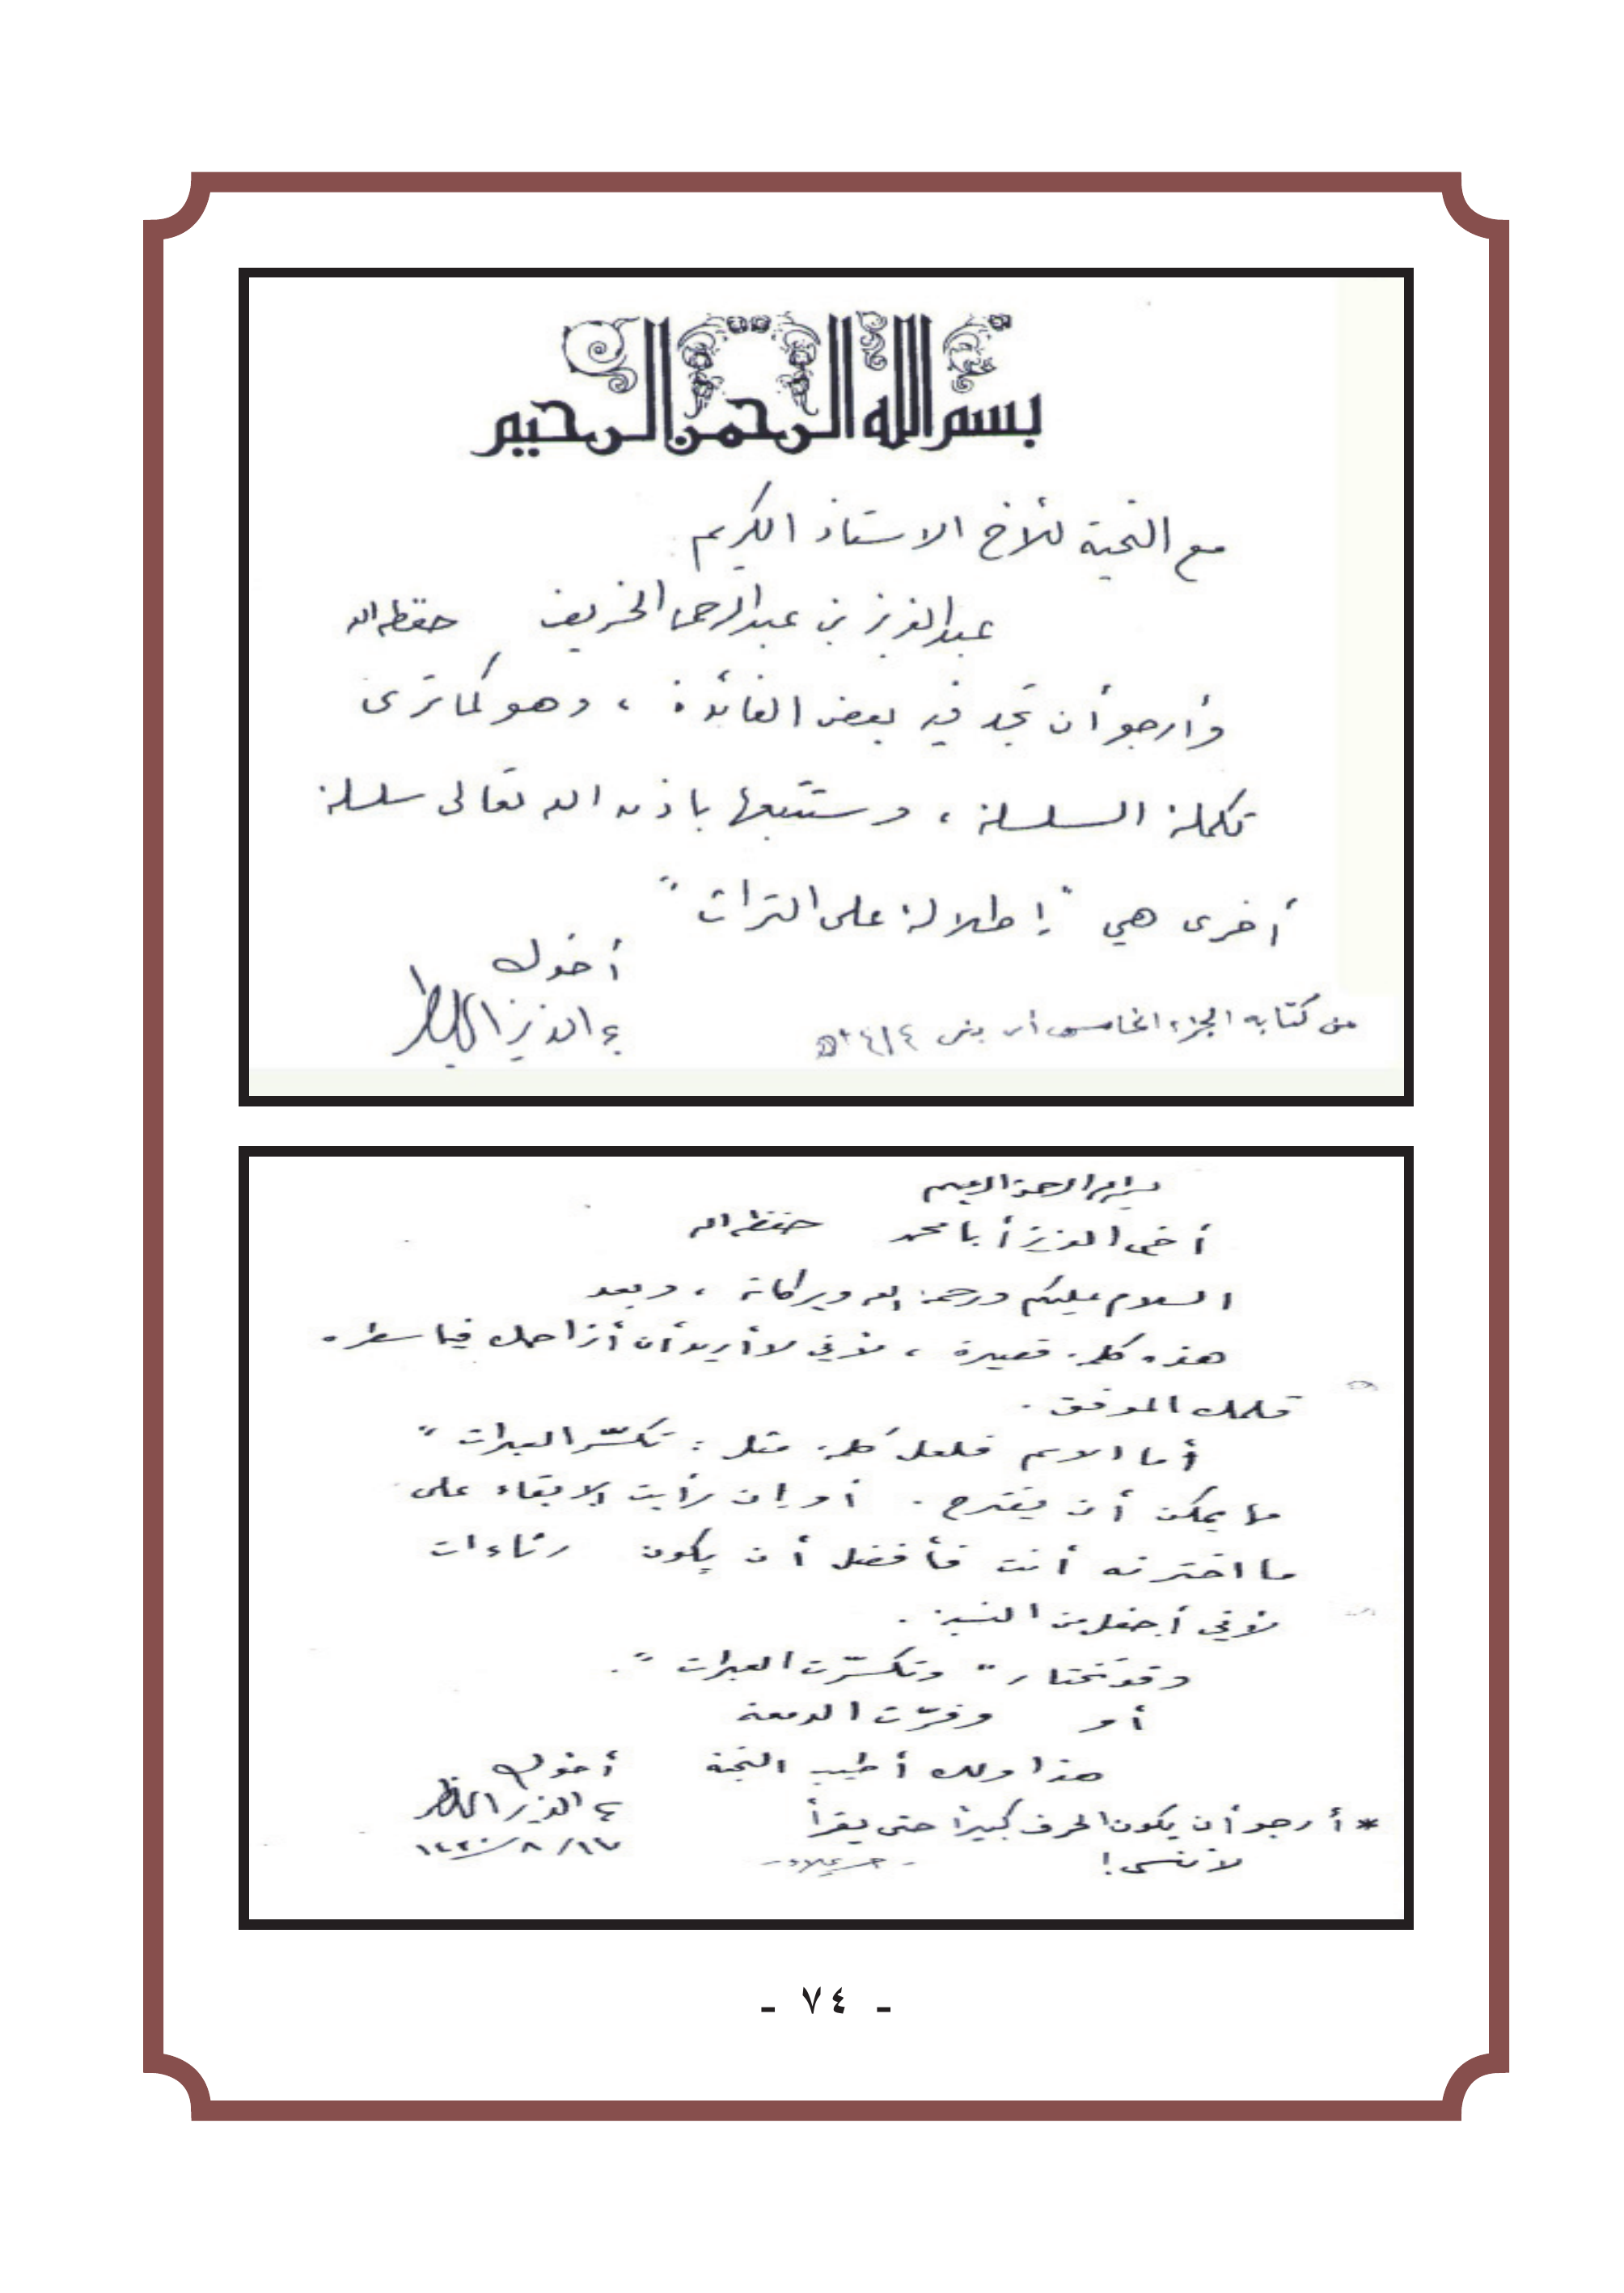 بسم الله الرحمن الرحيم
مع التحية للأخ الاستاذ الكريم
عبدالعزيز بن عبدالرحمن الخريف حفظه الله
وأرجو أن تجد فيه بعض الفائدة ، وهو كما ترى
تكملة السلسلة ، وستتبعها باذن الله تعالى سلسلة
أخرى هي "إطلالة على التراث"
أخوك
عبدالعزيز الخويطر
من كتابه الجزء الخامس أي بني
بسم الله الرحمن الرحيم
أخي العزيز أبا محمد حفظه الله
السلام عليكم ورحمة الله وبركاته ، وبعد
هذه كلمة قصيرة ، لأني لا أريد أن أزاحمك فيما سطره
قلمك الموفق .
أما الاسم فلعل كلمة مثل : تكسّر العبرات "
ما يمكن أن يقترح . أو إن رأيت الإبقاء على
ما اخترته أنت فأفضل أن يكون رثاءات
لأني أجفل من النسبة .
وقد تختار " وتكسّرت العبرات ".
أو وفرّت الدمعة
هذا ولك أطيب التحية
أخوك
عبدالعزيز الخويطر
١٤٣٠/٨/١٧
* أرجو أن يكون الحرف كبيرًا حتى يقرأ
لا تنسى!
- ٧٤ -